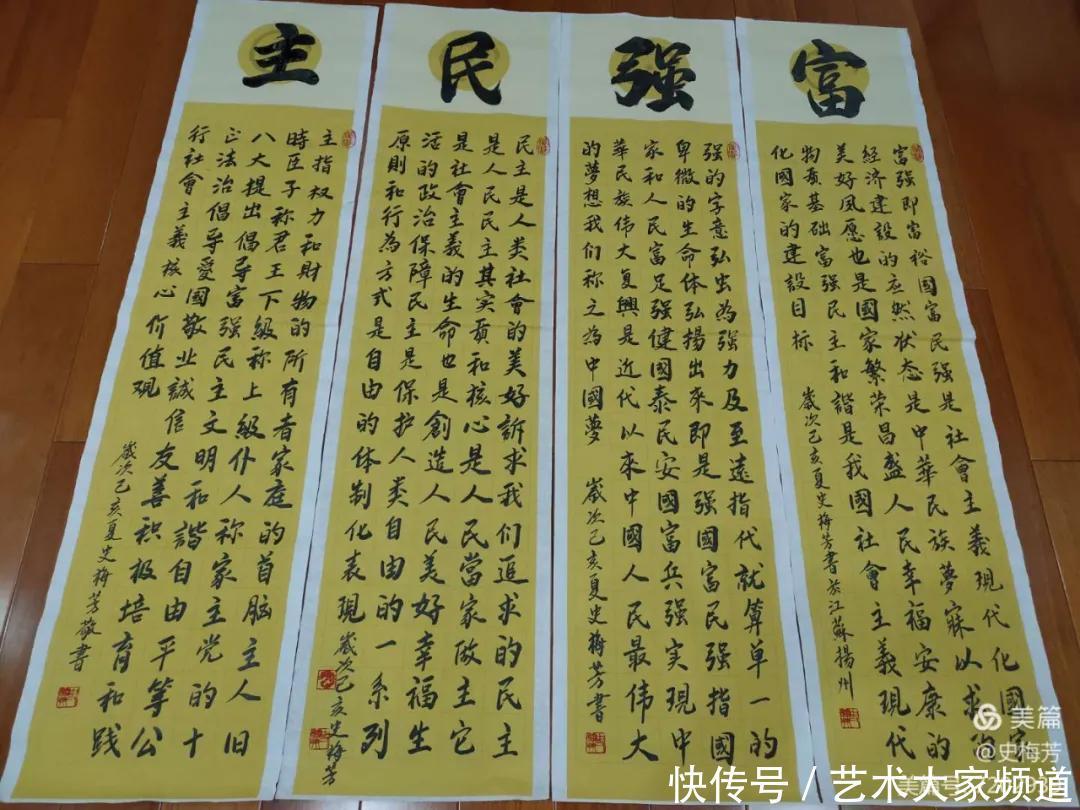 富
富强即富裕國富民强是社會主義現代化國家
经济建設的应然状态是中華民族夢寐以求的
美好夙愿也是國家繁荣昌盛人民幸福安康的
物质基础富强民主和諧是我國社會主義現代
化國家的建設目标
歲次己亥夏史梅芳書於江蘇揚州
强
强的字意弘虫為强力及至遠指代就算单一的
卑微的生命体弘揚出來即是强國富民强指國
家和人民富足强健國泰民安國富兵强实現中
華民族伟大复興是近代以來中國人民最伟大
的夢想我们称之為中國夢
歲次己亥夏史梅芳書
民
民主是人类社會的美好訴求我们追求的民主
是人民民主其实质和核心是人民當家做主它
是社會主義的生命也是創造人民美好幸福生
活的政治保障民主是保护人类自由的一系列
原則和行為方式是自由的体制化表現
歲次己亥史梅芳
主
主指权力和財物的所有者家庭的首脑主人旧
時臣子称君王下级称上级仆人称家主党的十
八大提出倡导富强民主文明和諧自由平等公
正法治倡导愛國敬业誠信友善积极培育和践
行社會主義核心价值观
歲次己亥夏史梅芳敬書
美篇
@史梅芳
美篇号
快传号 / 艺术大家频道